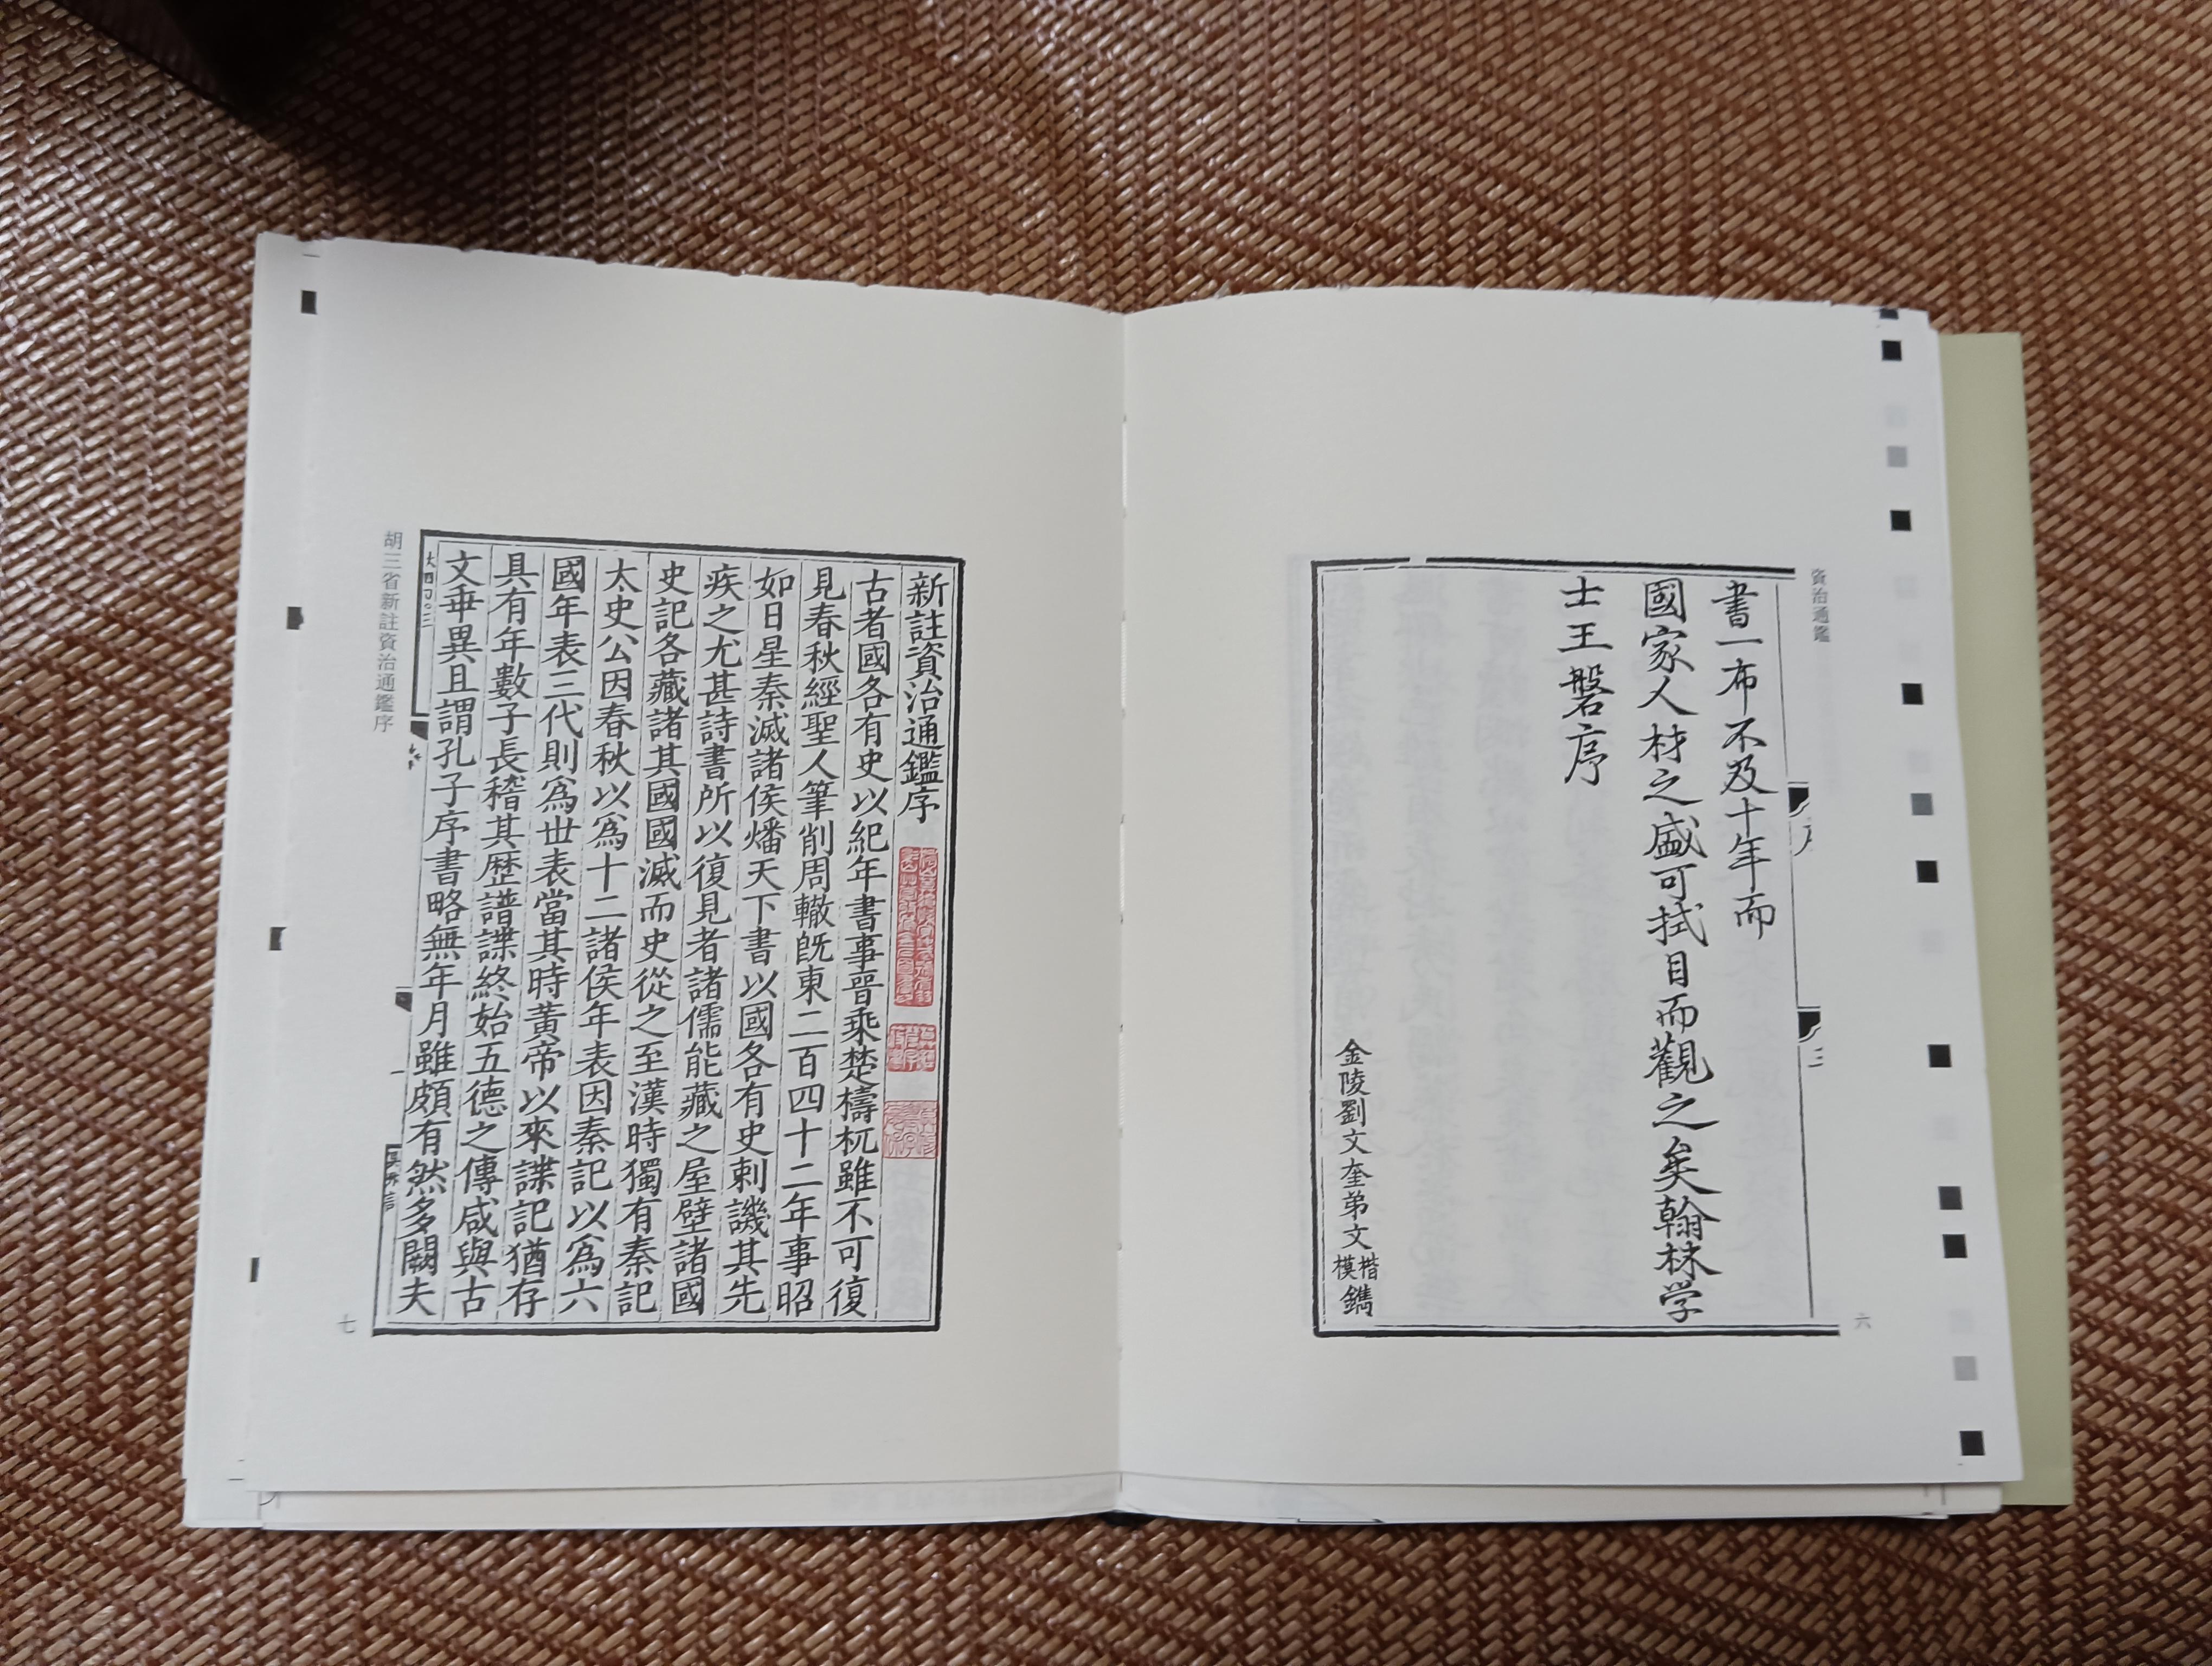 資治通鑑
書一布不及十年而
國家人材之盛可拭目而觀之矣翰林学
士王磐序
金陵劉文奎弟文楷模鐫
六
新註資治通鑑序
古者國各有史以紀年書事晉乘楚檮杌雖不可復
見春秋經聖人筆削周轍旣東二百四十二年事昭
如日星秦滅諸侯燔天下書以國各有史刺譏其先
疾之尤甚詩書所以復見者諸儒能藏之屋壁諸國
史記各藏諸其國國滅而史從之至漢時獨有秦記
太史公因春秋以爲十二諸侯年表因秦記以爲六
國年表三代則爲世表當其時黃帝以來諜記猶存
具有年數子長稽其歷譜諜終始五德之傳咸與古
文乖異且謂孔子序書略無年月雖頗有然多闕夫
胡三省新註資治通鑑序
七